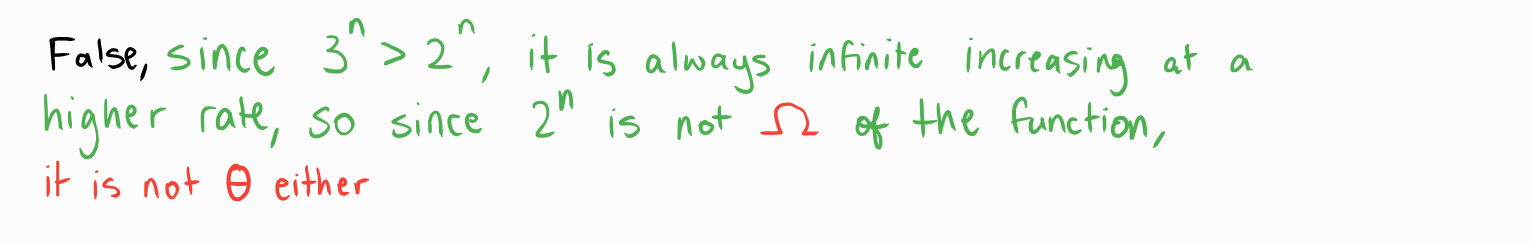 False, since 3ⁿ > 2ⁿ, it is always infinite increasing at a
higher rate, so since 2ⁿ is not Ω of the function,
it is not Θ either